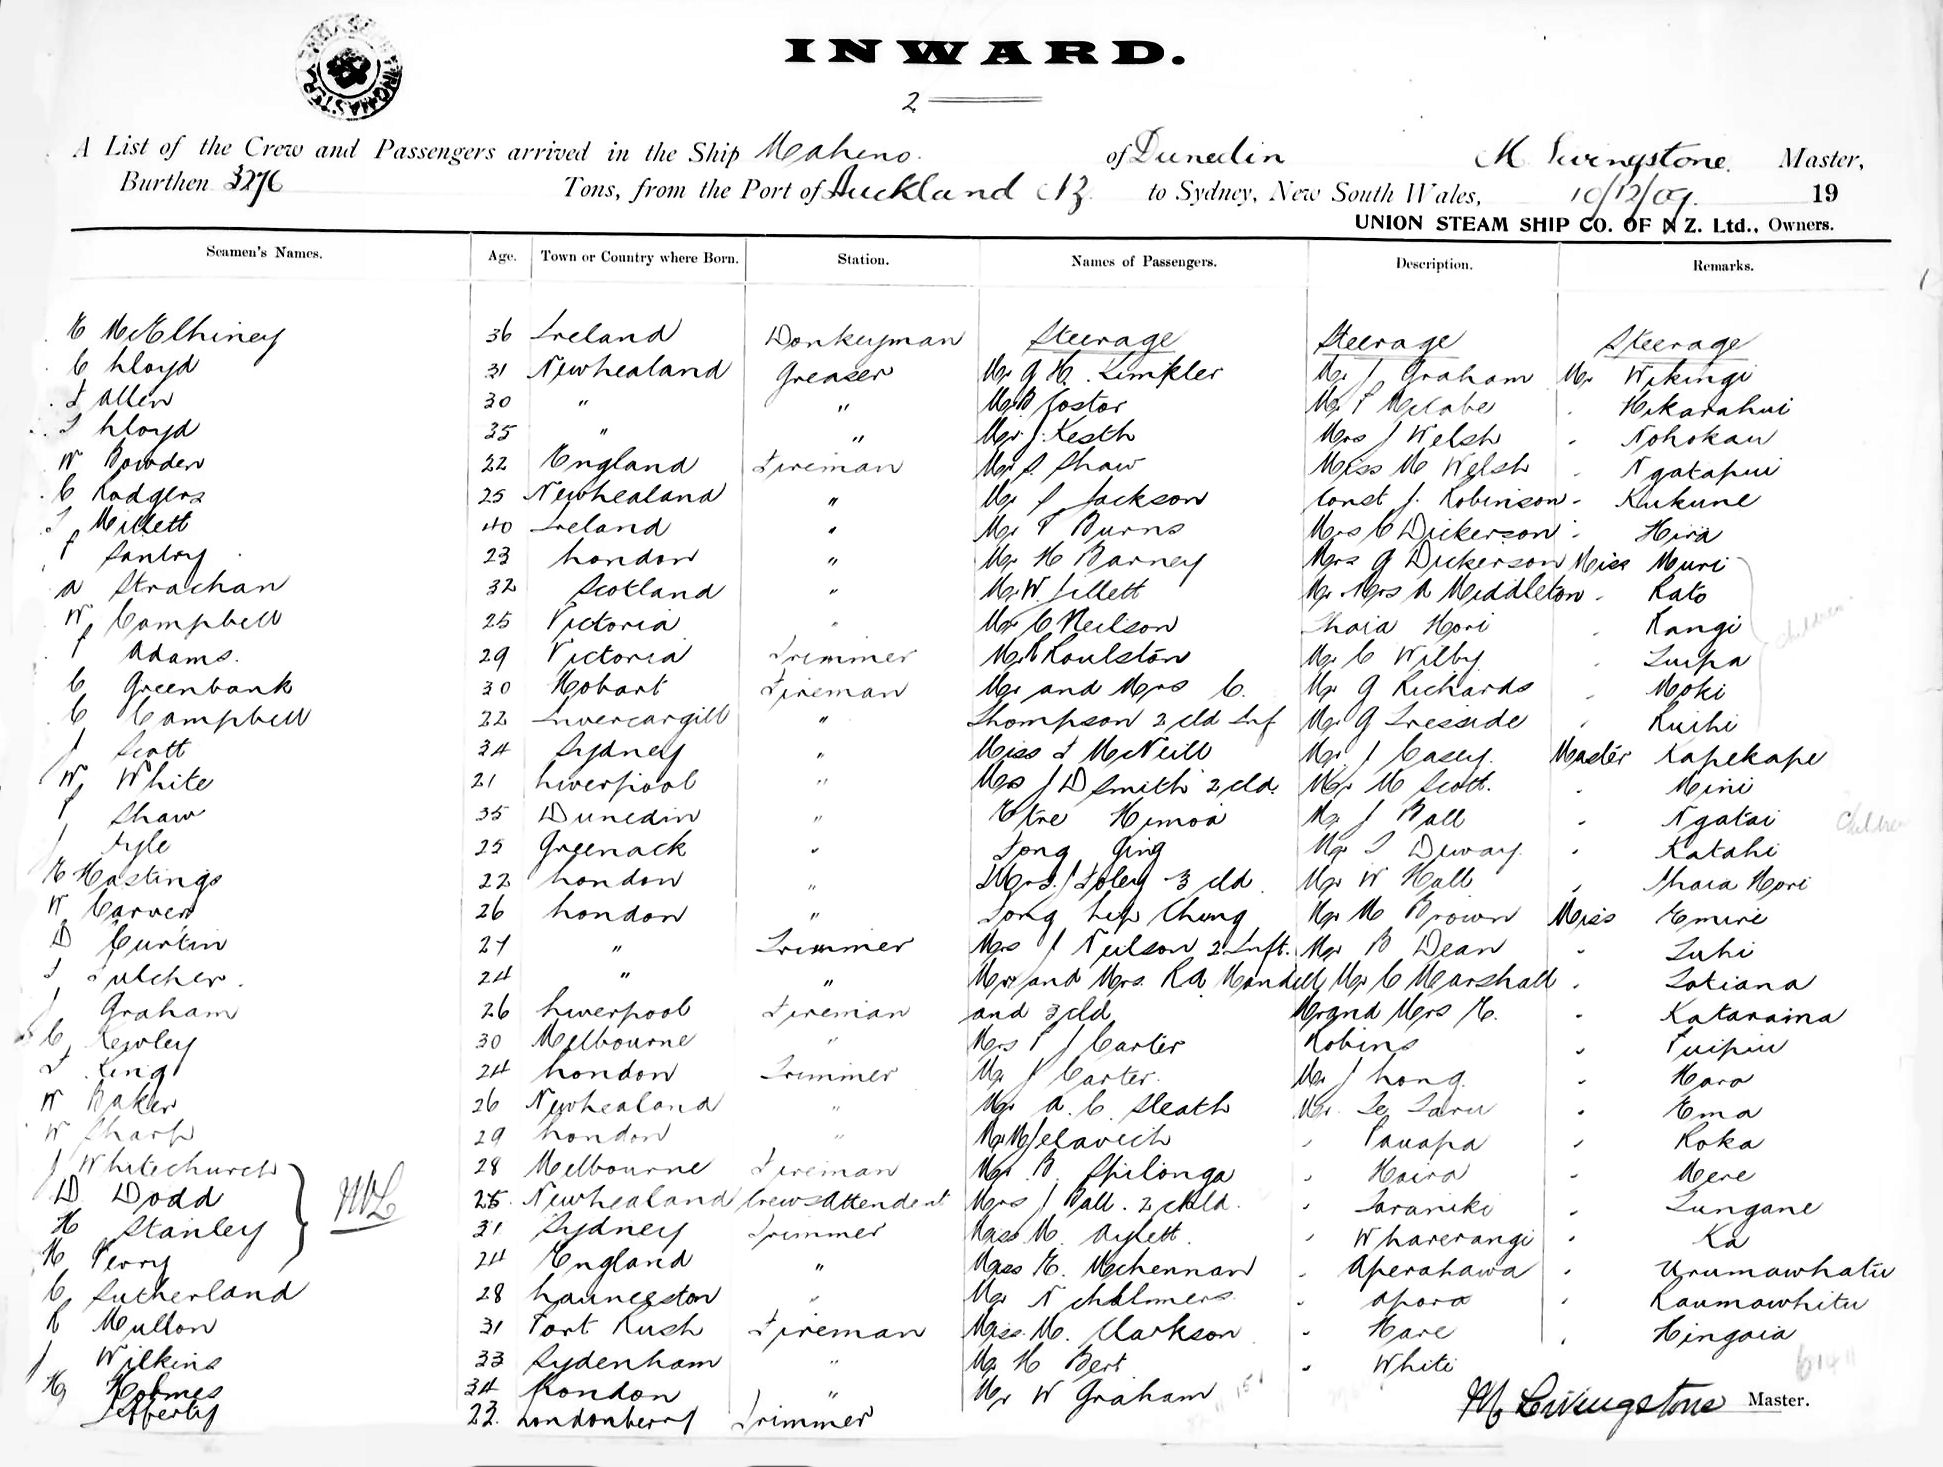 INWARD.
2
A List of the Crew and Passengers arrived in the Ship Maheno. of Dunedin M Livingstone. Master,
Burthen 3276 Tons, from the Port of Auckland NZ. to Sydney, New South Wales, 10/12/09. 19
UNION STEAM SHIP CO. OF N Z. Ltd., Owners.
Seamen's Names. Age. Town or Country where Born. Station. Names of Passengers. Description. Remarks.
E McElhiney 36 Ireland Donkeyman Steerage Steerage Steerage
C Lloyd 31 New Zealand Greaser Mr G H. Mr J Graham Mr Wikingi
Allen 30 " " Mr B Foster Mr P McCabe " Hikarahui
Lloyd 35 " " Mr J. Mrs J Welsh " Nohokau
W Bowden 22 England Fireman Mr S Shaw Miss M Welsh " Ngatapui
C Rodgers 25 New Zealand " Mr J Jackson Const J. Robinson " Kukune
Millett 40 Ireland " Mr P Burns Mrs C Dickerson " Hira
P Santry 23 London " Mr H Barney Mrs G Dickerson Miss Muri
A Strachan 32 Scotland " Mr W. Mr Mrs A Middleton " Rato
W Campbell 25 Victoria " Mr C Neilson Ihaia Hori " Rangi children
P Adams. 29 Victoria Trimmer Mr R Roulston Mr C Wilby " Tuipa
C Greenbank 30 Hobart Fireman Mr and Mrs C. Mr G Richards " Moki
C Campbell 22 Invercargill " Thompson 2 cld Inf Mr G " Ruihi
J Scott 34 Sydney " Miss McNeill Mr. J Casey. Master Kapekape
W White 21 Liverpool " Mrs J D Smith 2 cld. Mr M Scott. " Mini
P Shaw 35 Dunedin " Himoa Mr J Ball " Ngatai Children
J Lyle 25 Greenock " Tong Ging Mr Deway. " Katahi
E Hastings 22 London " Mrs J Foley 3 cld Mr W Hall " Ihaia Hori
W Carver 26 London " Tong Chung Mr M Brown Miss Emire
D Curtin 27 " Trimmer Mrs J Neilson 2 Inft. Mr B Dean " Tuhi
24 " " Mr and Mrs. R A Mandell Mr C Marshall " Totiana
J Graham 26 Liverpool Fireman and 3 cld Mr and Mrs E. " Kataraina
C Kewley 30 Melbourne " Mrs P J Carter Robins " Puipui
King 24 London Trimmer Mr J Carter. Mr J Long. " Hara
W Baker 26 New Zealand " Mr A. C. Sleath Mr Te Taru " Ema
W Sharp 29 London " Mr M Jelavich " Pauapa " Roka
J Whitechurch 28 Melbourne Fireman Mr B. Spilonga " Haira " Mere
D Dodd 25. New Zealand Crews Attendent Mrs J Ball. 2 child. " Taraniki " Tungane
H Stanley 31 Sydney Trimmer Miss M. Aylett. " Wharerangi " Ka
H Perry 24 England " Miss E. McLennan " Aperahawa " Urumawhatu
C Sutherland 28 Launceston " Mr N Chalmers " Apora " Raumawhitu
R Mullon 31 Port Rush Fireman Miss. M. Clarkson " Hare " Hingaia
J Wilkins 33 Sydenham " Mr H Bert " Whiti
H Holmes 34 London " Mr W Graham
Lefferty 22. Londonberry Trimmer
M Livingstone Master.